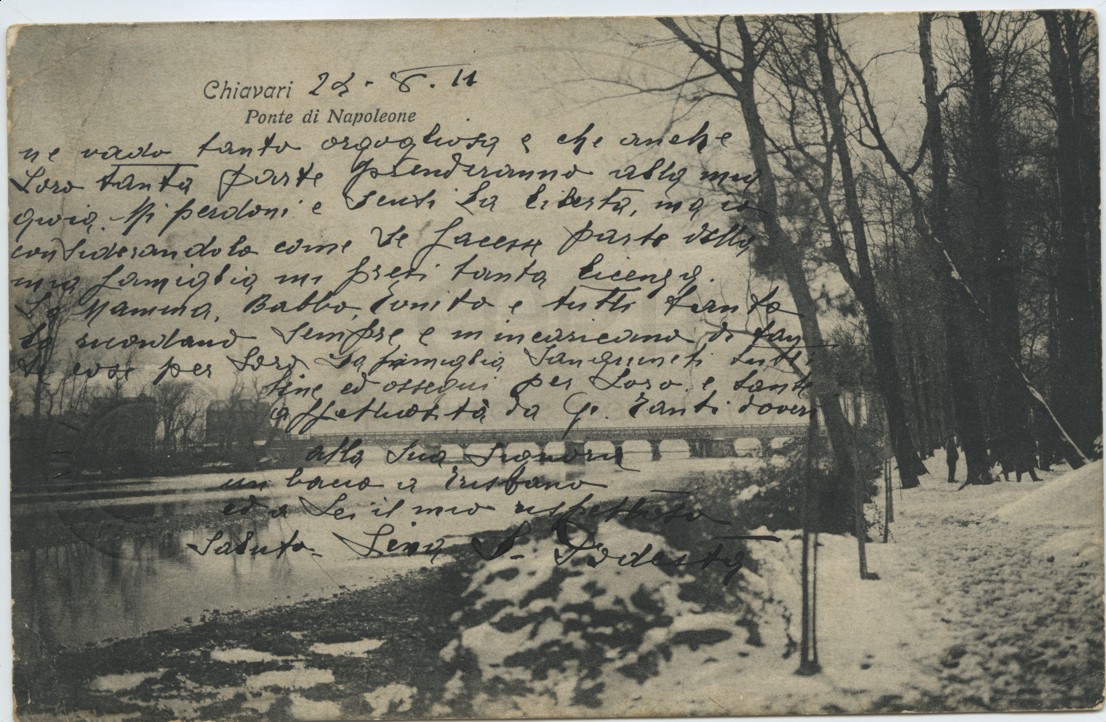 Chiavari 24-8.11
Ponte di Napoleone
ne vado tanto orgogliosa e che anche
Loro tanta parte prenderanno alla mia
gioia. Mi perdoni e scusi la libertà, ma io
considerandolo come se facesse parte della
mia famiglia mi presi tanta licenza.
La Mamma, Babbo, Tonito e tutti tanto
La ricordano sempre e m'incaricano di tan
te cose per Loro. La famiglia Sanguineti tutti
ed ossequi per Loro e tante
affettuosità da G. Tanti doveri
alla Sua Signora
un bacio a
ed a Lei il mio rispettoso
saluto. Lina S. Podestà